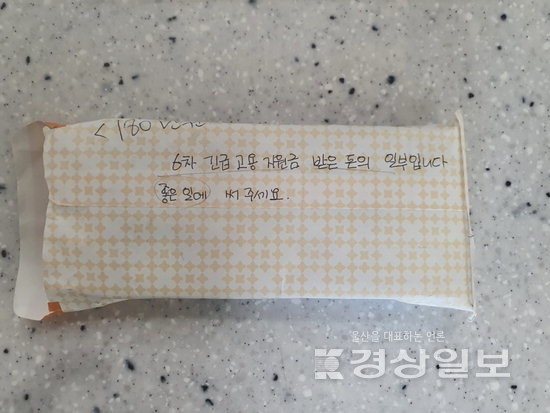 <180
6차 긴급 고용 지원금 받은 돈의 일부입니다
좋은 일에 써 주세요.
울산을 대표하는 언론
경상일보